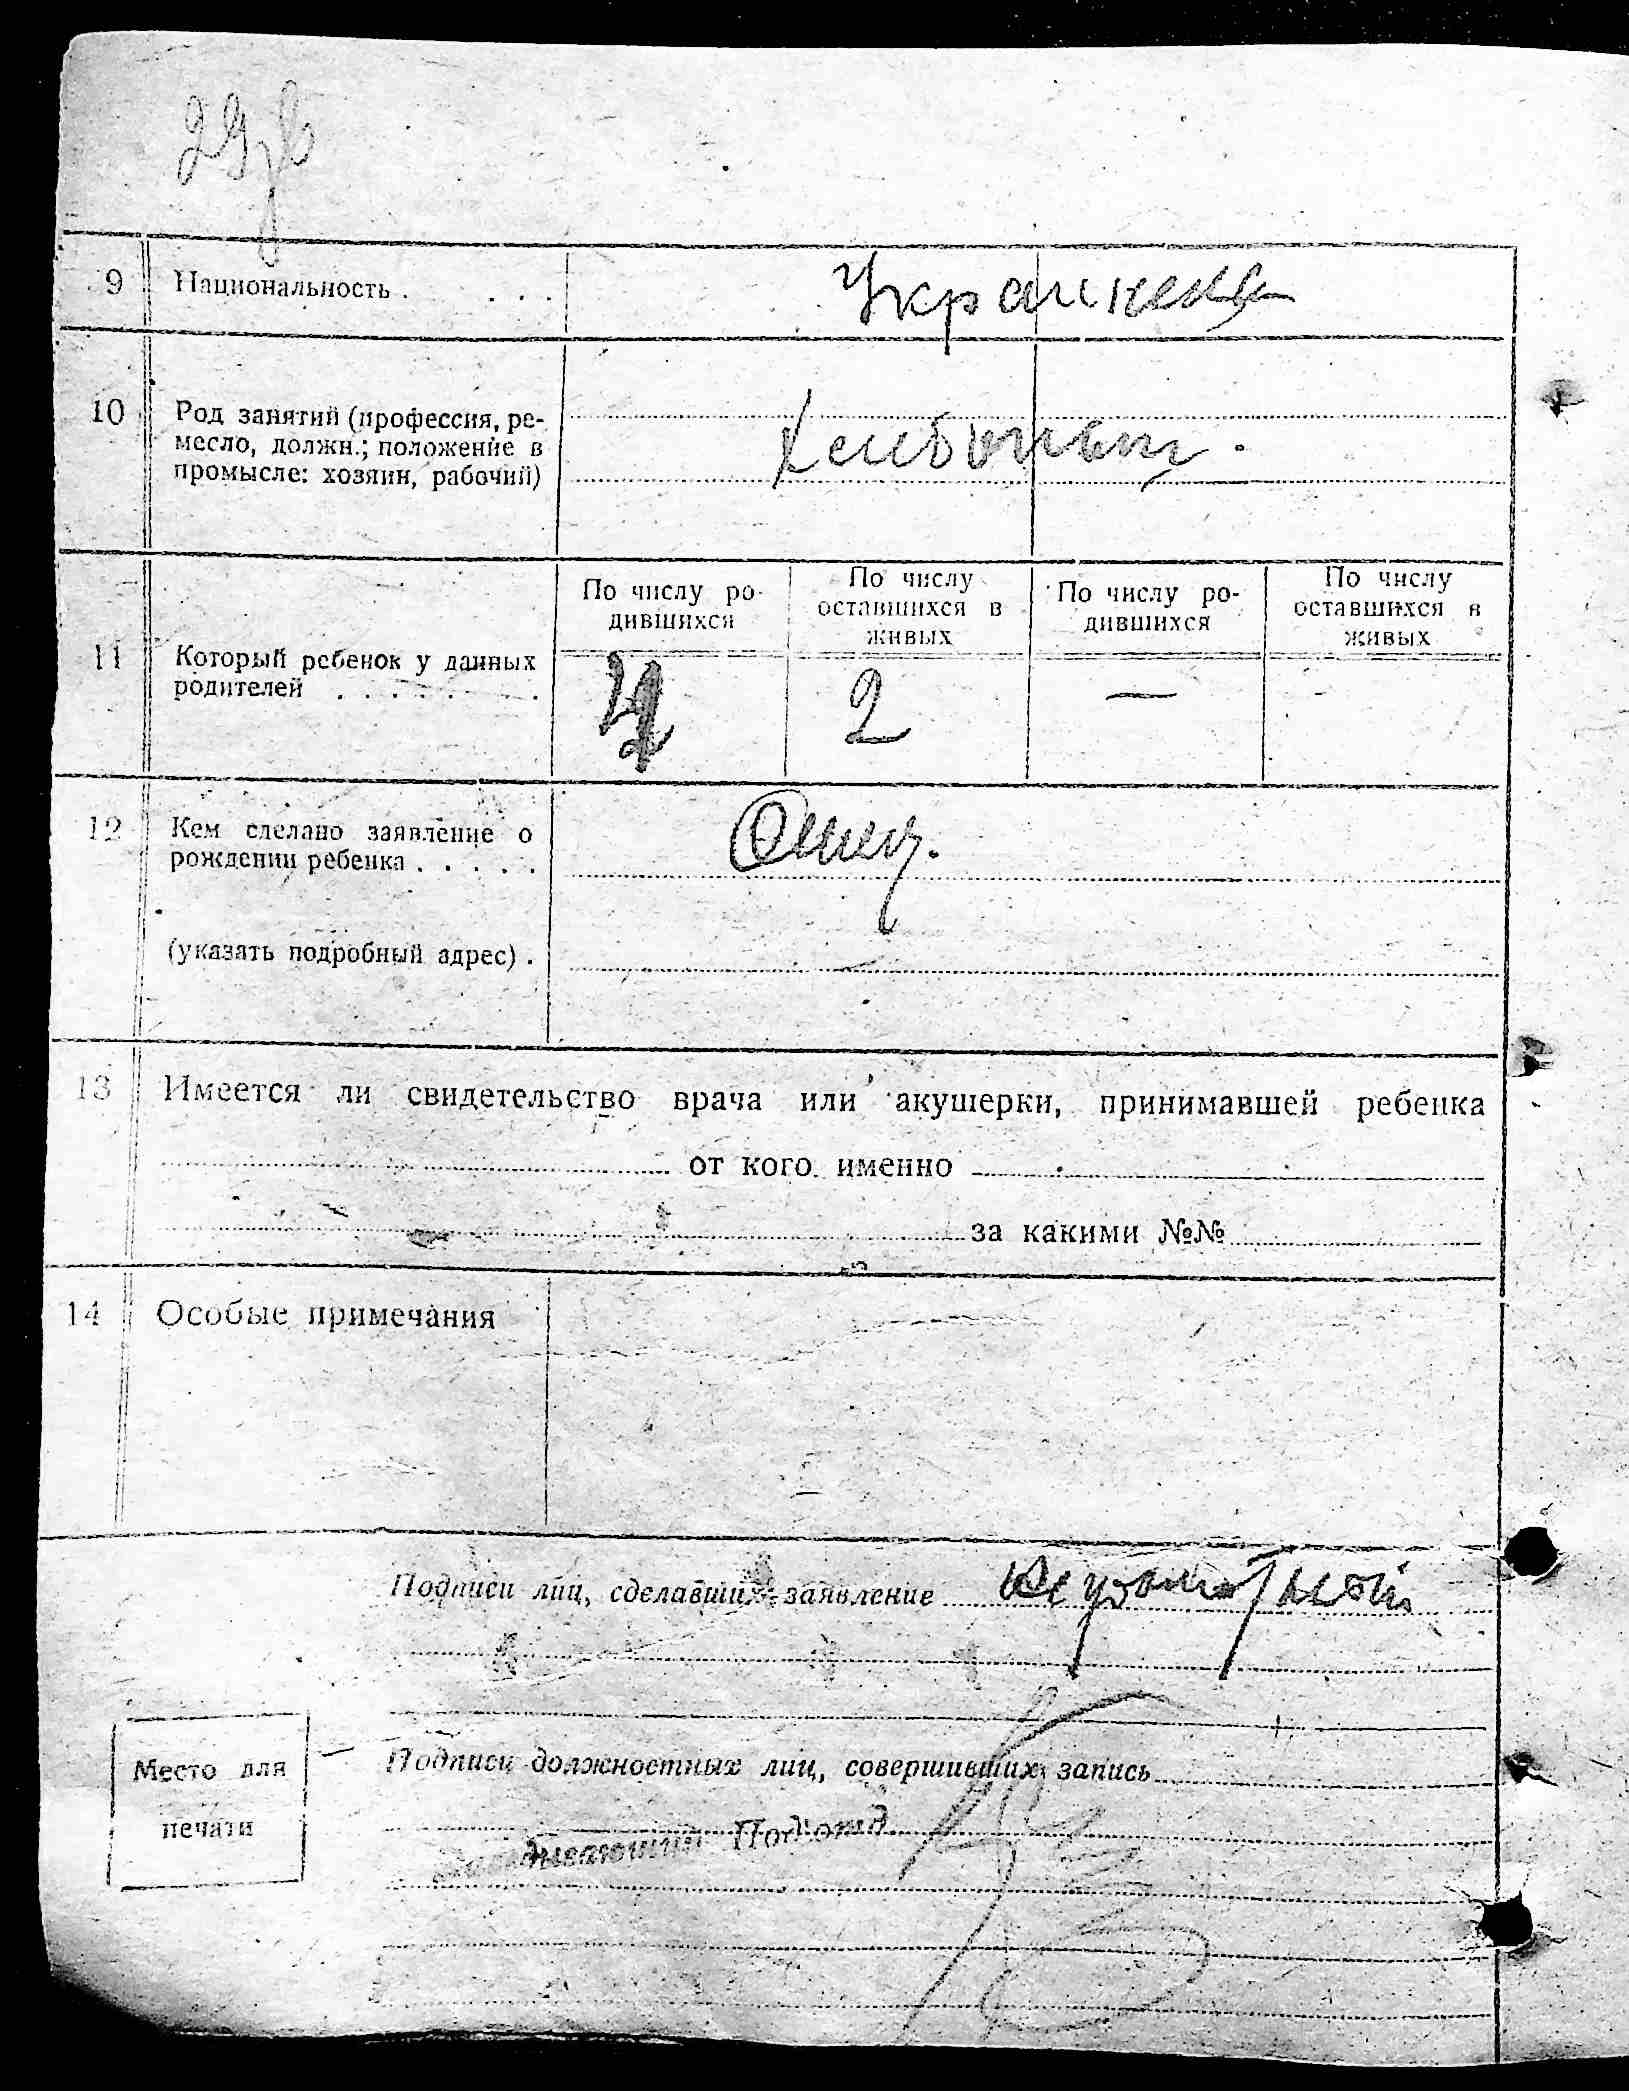 9 Национальность . . . .
Украинская
10 Род занятий (профессия, ре-
месло, должн.; положение в
промысле: хозяин, рабочий)
Хлебопаш.
По числу ро-
дившихся
По числу
оставшихся в
живых
По числу ро-
дившихся
По числу
оставшихся в
живых
11 Который ребенок у данных
родителей . . . . . . . .
2 —
12 Кем сделано заявление о
рождении ребенка . . . . .
Отец.
(указать подробный адрес) .
13 Имеется ли свидетельство врача или акушерки, принимавшей ребенка
от кого именно
за какими №№
14 Особые примечания
Подписи лиц, сделавших заявление
Место для
печати
Подписи должностных лиц, совершивших запись